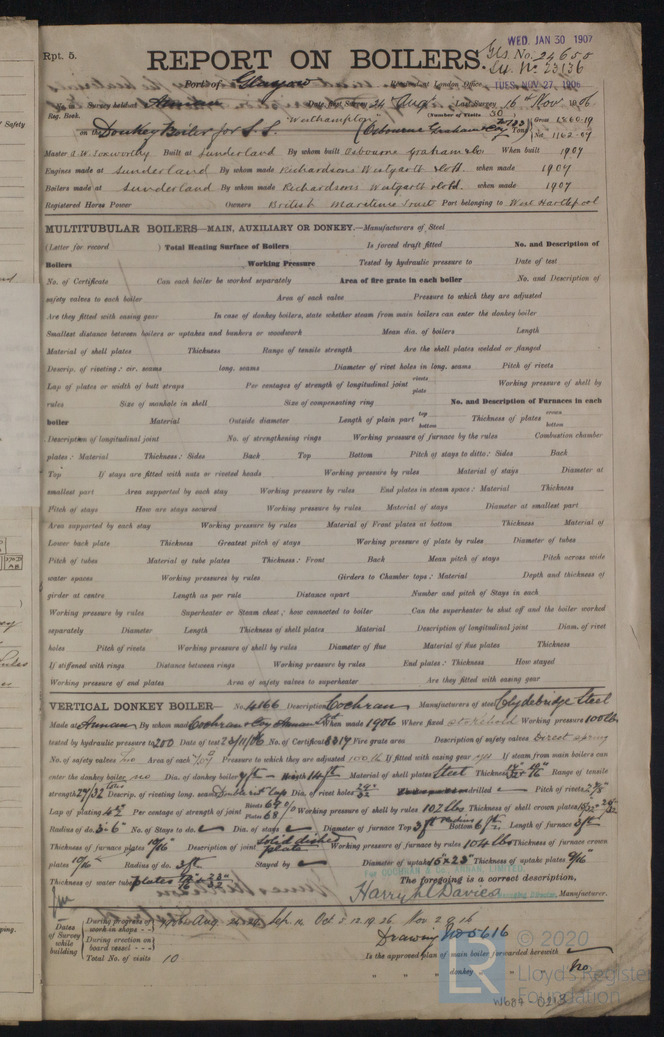 Rpt. 5.
WED. JAN 30 1907
REPORT ON BOILERS.
Gls. No. 24650
Port of Glasgow
Received at London Office TUES. NOV. 27, 1906
No. in Reg. Book. Survey held at Annan Date, first Survey 24 Aug Last Survey 16th Nov. 1906
(Number of Visits
on the Donkey Boiler for S.S. "Westhampton" (Osbourne Graham & Coy) Tons Gross 1860.19 Net 1162.07
Master Built at Sunderland By whom built Osbourne Graham & Co. When built 1907
Engines made at Sunderland By whom made Richardsons Westgarth & Co Ld. when made 1907
Boilers made at Sunderland By whom made Richardsons Westgarth & Co Ld. when made 1907
Registered Horse Power Owners British Maritime Trust Port belonging to West Hartlepool
MULTITUBULAR BOILERS—MAIN, AUXILIARY OR DONKEY.—Manufacturers of Steel
(Letter for record ) Total Heating Surface of Boilers Is forced draft fitted No. and Description of
Boilers Working Pressure Tested by hydraulic pressure to Date of test
No. of Certificate Can each boiler be worked separately Area of fire grate in each boiler No. and Description of
safety valves to each boiler Area of each valve Pressure to which they are adjusted
Are they fitted with easing gear In case of donkey boilers, state whether steam from main boilers can enter the donkey boiler
Smallest distance between boilers or uptakes and bunkers or woodwork Mean dia. of boilers Length
Material of shell plates Thickness Range of tensile strength Are the shell plates welded or flanged
Descrip. of riveting: cir. seams long. seams Diameter of rivet holes in long. seams Pitch of rivets
Lap of plates or width of butt straps Per centages of strength of longitudinal joint rivets plate Working pressure of shell by
rules Size of manhole in shell Size of compensating ring No. and Description of Furnaces in each
boiler Material Outside diameter Length of plain part top bottom Thickness of plates crown bottom
Description of longitudinal joint No. of strengthening rings Working pressure of furnace by the rules Combustion chamber
plates: Material Thickness: Sides Back Top Bottom Pitch of stays to ditto: Sides Back
Top If stays are fitted with nuts or riveted heads Working pressure by rules Material of stays Diameter at
smallest part Area supported by each stay Working pressure by rules End plates in steam space: Material Thickness
Pitch of stays How are stays secured Working pressure by rules Material of stays Diameter at smallest part
Area supported by each stay Working pressure by rules Material of Front plates at bottom Thickness Material of
Lower back plate Thickness Greatest pitch of stays Working pressure of plate by rules Diameter of tubes
Pitch of tubes Material of tube plates Thickness: Front Back Mean pitch of stays Pitch across wide
water spaces Working pressures by rules Girders to Chamber tops: Material Depth and thickness of
girder at centre Length as per rule Distance apart Number and pitch of Stays in each
Working pressure by rules Superheater or Steam chest; how connected to boiler Can the superheater be shut off and the boiler worked
separately Diameter Length Thickness of shell plates Material Description of longitudinal joint Diam. of rivet
holes Pitch of rivets Working pressure of shell by rules Diameter of flue Material of flue plates Thickness
If stiffened with rings Distance between rings Working pressure by rules End plates: Thickness How stayed
Working pressure of end plates Area of safety valves to superheater Are they fitted with easing gear
VERTICAL DONKEY BOILER— No. 4166 Description Cochran Manufacturers of steel Clydebridge Steel
Made at Annan By whom made Cochran & Coy Annan Ld. When made 1906 Where fixed stokehold Working pressure 100 lbs
tested by hydraulic pressure to 200 Date of test 23/11/06 No. of Certificate 8317 Fire grate area Description of safety valves Direct spring
No. of safety valves Two Area of each Pressure to which they are adjusted If fitted with easing gear yes If steam from main boilers can
enter the donkey boiler no Dia. of donkey boiler Length 14 ft Material of shell plates Steel Thickness Range of tensile
strength 27/32 tons Descrip. of riveting long. seams Dia. of rivet holes drilled Pitch of rivets
Lap of plating Per centage of strength of joint Rivets 67 Plates 68 Working pressure of shell by rules 107 lbs Thickness of shell crown plates
Radius of do. 3-6" No. of Stays to do. Dia. of stays Diameter of furnace Top Bottom Length of furnace
Thickness of furnace plates Description of joint Solid dished plate Working pressure of furnace by rules 104 lbs Thickness of furnace crown
plates Radius of do. 3 ft Stayed by Diameter of uptake 15 x 23" Thickness of uptake plates 9/16"
Thickness of water tubes plates The foregoing is a correct description,
For COCHRAN & CO., ANNAN, LIMITED.
Harry L Davies Managing Director, Manufacturer.
Dates of Survey while building
During progress of work in shops - - 1906 Aug. 24.29 Sep. 14 Oct 2.12.19.26 Nov 2.9.16
During erection on board vessel - - -
Total No. of visits 10
Drawing No 5616
Is the approved plan of main boiler forwarded herewith
" " " donkey " " " No
© 2020
Lloyd's Register Foundation
LR
W684-0213